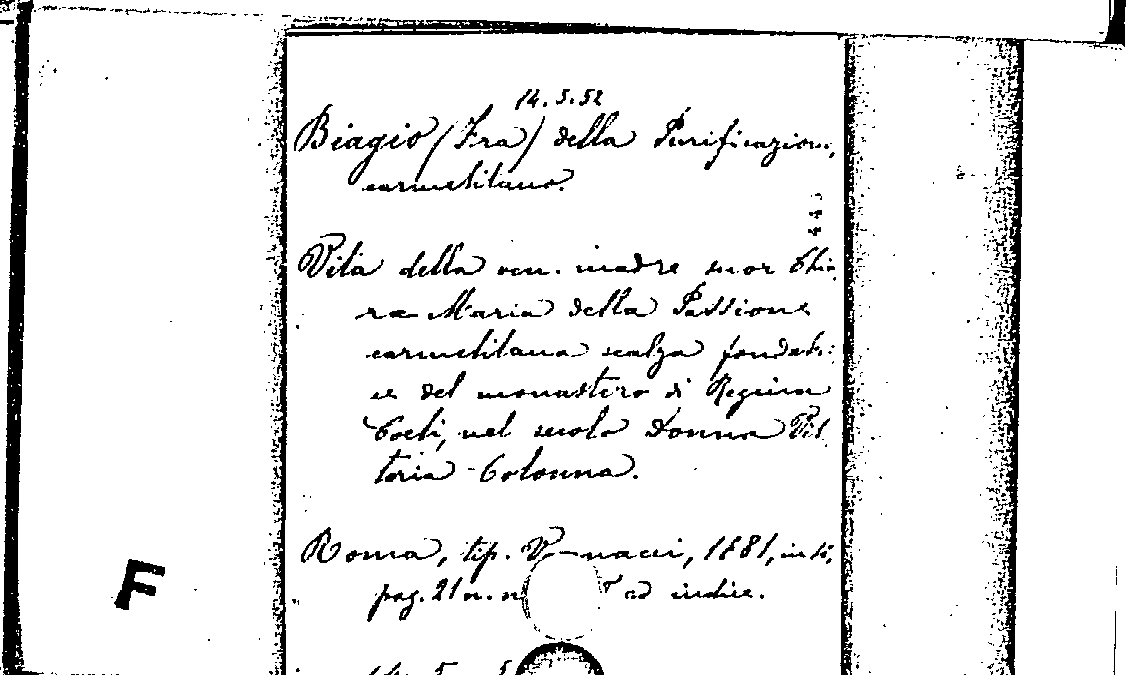 14.5.52
Biagio (Fra) della Purificazione,
carmelitano.
443
Vita della ven. madre suor Chia
ra Maria della Passione
carmelitana scalza fondatri:
ce del monastero di Regina
Coeli, nel secolo Donna Vit
toria Colonna.
Roma, tip. 1681, in 4°,
pag. 21 n. n. ed indice.
14. 5. 5
F